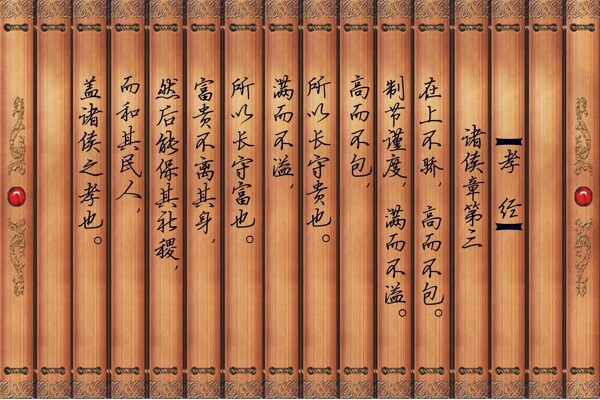 【孝经】
诸侯章第三
在上不骄，高而不包。
制节谨度，满而不溢。
高而不包，
所以长守贵也。
满而不溢，
所以长守富也。
富贵不离其身，
然后能保其社稷，
而和其民人，
盖诸侯之孝也。